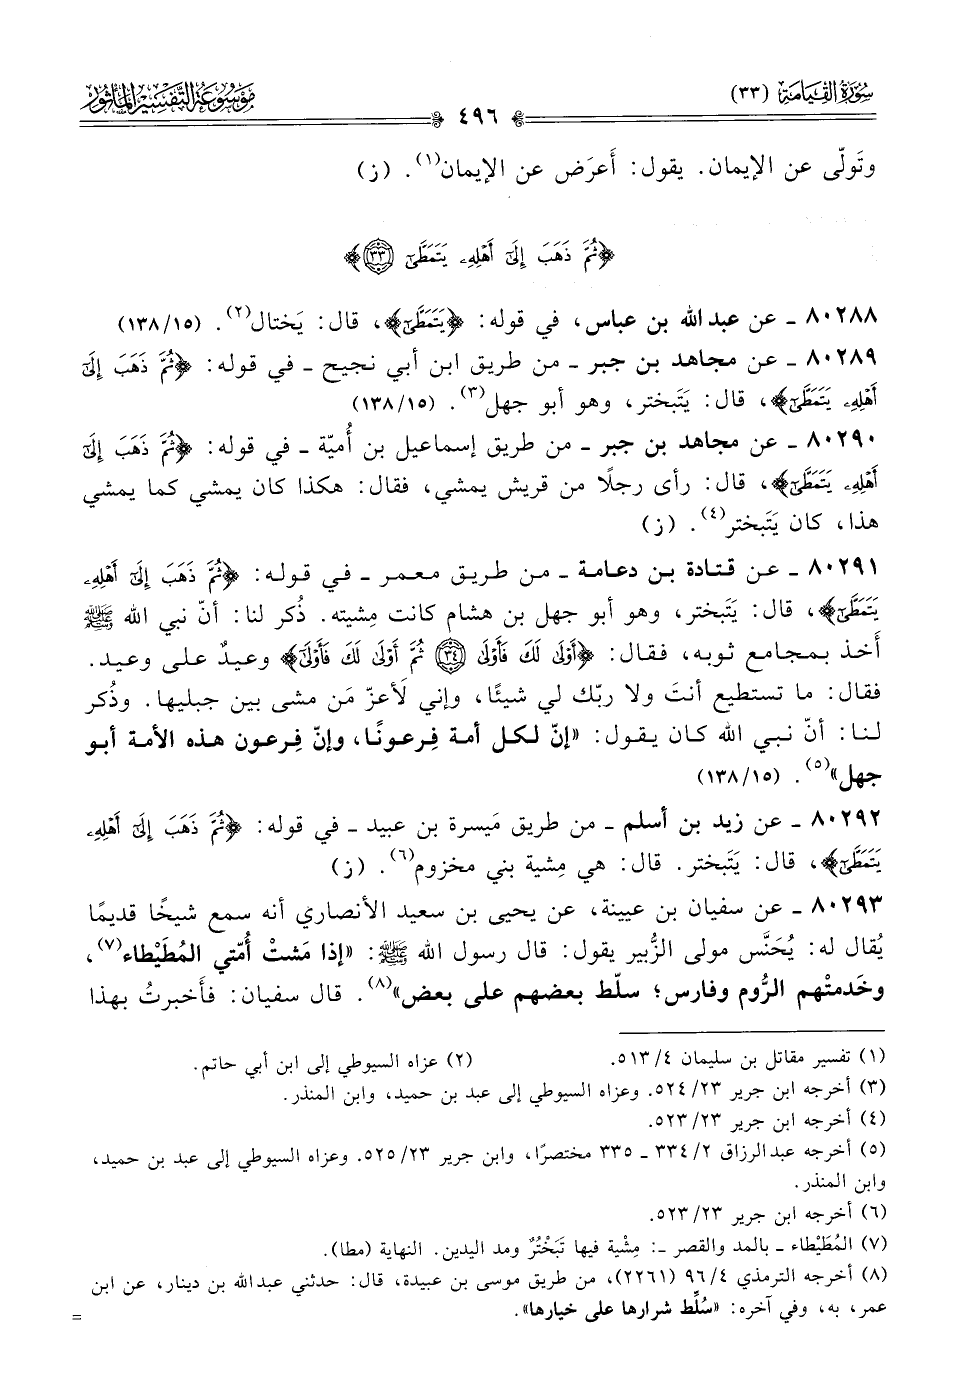 سُورَةُ القِيَامَة (٣٣)
٤٩٦
مَوْسُوعَة التَّفْسِيرِ المَأْثُور
وتَولّى عن الإيمان. يقول: أَعرَض عن الإيمان(١). (ز)
﴿ثُمَّ ذَهَبَ إِلَىٰ أَهْلِهِۦ يَتَمَطَّىٰٓ ٣٣﴾
٨٠٢٨٨ ـ عن عبد الله بن عباس، في قوله: ﴿يَتَمَطَّىٰٓ﴾، قال: يَختال(٢). (١٥/١٣٨)
٨٠٢٨٩ ـ عن مجاهد بن جبر ـ من طريق ابن أبي نجيح ـ في قوله: ﴿ثُمَّ ذَهَبَ إِلَىٰٓ
أَهْلِهِۦ يَتَمَطَّىٰٓ﴾، قال: يَتبختر، وهو أبو جهل(٣). (١٥/١٣٨)
٨٠٢٩٠ ـ عن مجاهد بن جبر ـ من طريق إسماعيل بن أُميّة ـ في قوله: ﴿ثُمَّ ذَهَبَ إِلَىٰٓ
أَهْلِهِۦ يَتَمَطَّىٰٓ﴾، قال: رأى رجلًا من قريش يمشي، فقال: هكذا كان يمشي كما يمشي
هذا، كان يَتبختر(٤). (ز)
٨٠٢٩١ ـ عن قتادة بن دعامة ـ من طريق معمر ـ في قوله: ﴿ثُمَّ ذَهَبَ إِلَىٰٓ أَهْلِهِۦ
يَتَمَطَّىٰٓ﴾، قال: يَتَبختر، وهو أبو جهل بن هشام كانت مِشيته. ذُكر لنا: أنّ نبي الله ﷺ
أخذ بمجامع ثوبه، فقال: ﴿أَوْلَىٰ لَكَ فَأَوْلَىٰ ٣٤ ثُمَّ أَوْلَىٰ لَكَ فَأَوْلَىٰٓ﴾ وعيدٌ على وعيد.
فقال: ما تستطيع أنتَ ولا ربّك لي شيئًا، وإني لَأعزّ مَن مشى بين جبليها. وذُكر
لنا: أنّ نبي الله كان يقول: «إنّ لكل أمة فِرعونًا، وإنّ فِرعون هذه الأمة أبو
جهل»(٥). (١٥/١٣٨)
٨٠٢٩٢ ـ عن زيد بن أسلم ـ من طريق مَيسرة بن عبيد ـ في قوله: ﴿ثُمَّ ذَهَبَ إِلَىٰٓ أَهْلِهِۦ
يَتَمَطَّىٰٓ﴾، قال: يَتَبختر. قال: هي مِشية بني مخزوم(٦). (ز)
٨٠٢٩٣ ـ عن سفيان بن عيينة، عن يحيى بن سعيد الأنصاري أنه سمع شيخًا قديمًا
يُقال له: يُحَنَّس مولى الزُّبير يقول: قال رسول الله ﷺ: «إذا مَشتْ أُمّتي المُطَيْطاء(٧)،
وخَدمتْهم الرُّوم وفارس؛ سلّط بعضهم على بعض»(٨). قال سفيان: فأَخبرتُ بهذا
(١) تفسير مقاتل بن سليمان ٤/٥١٣. (٢) عزاه السيوطي إلى ابن أبي حاتم.
(٣) أخرجه ابن جرير ٢٣/٥٢٤. وعزاه السيوطي إلى عبد بن حميد، وابن المنذر.
(٤) أخرجه ابن جرير ٢٣/٥٢٣.
(٥) أخرجه عبدالرزاق ٢/٣٣٤ ـ ٣٣٥ مختصرًا، وابن جرير ٢٣/٥٢٥. وعزاه السيوطي إلى عبد بن حميد،
وابن المنذر.
(٦) أخرجه ابن جرير ٢٣/٥٢٣.
(٧) المُطَيْطاء ـ بالمد والقصر ـ: مِشْية فيها تَبَخْتُرٌ ومد اليدين. النهاية (مطا).
(٨) أخرجه الترمذي ٤/٩٦ (٢٢٦١)، من طريق موسى بن عبيدة، قال: حدثني عبدالله بن دينار، عن ابن
عمر، به، وفي آخره: «سُلِّط شرارها على خيارها».
=